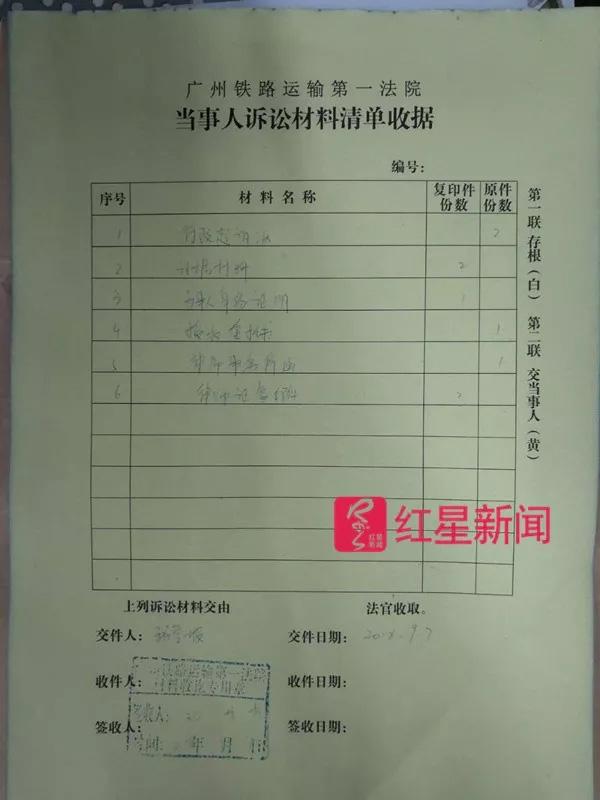 广州铁路运输第一法院
当事人诉讼材料清单收据
编号：
序号 材料名称 复印件份数 原件份数
1 行政起诉状 2
2 证据材料 2
3 身份证明 1
4 授权委托书 1
5 律师事务所函 1
6 律师证复印件 2
第一联 存根（白） 第二联 交当事人（黄）
红星新闻
红星新闻
上列诉讼材料交由 法官收取。
交件人： 交件日期：
收件人： 收件日期：
签收人： 签收日期：
铁路运输第一法院
材料收取专用章
签收人：
时间： 年 月 日